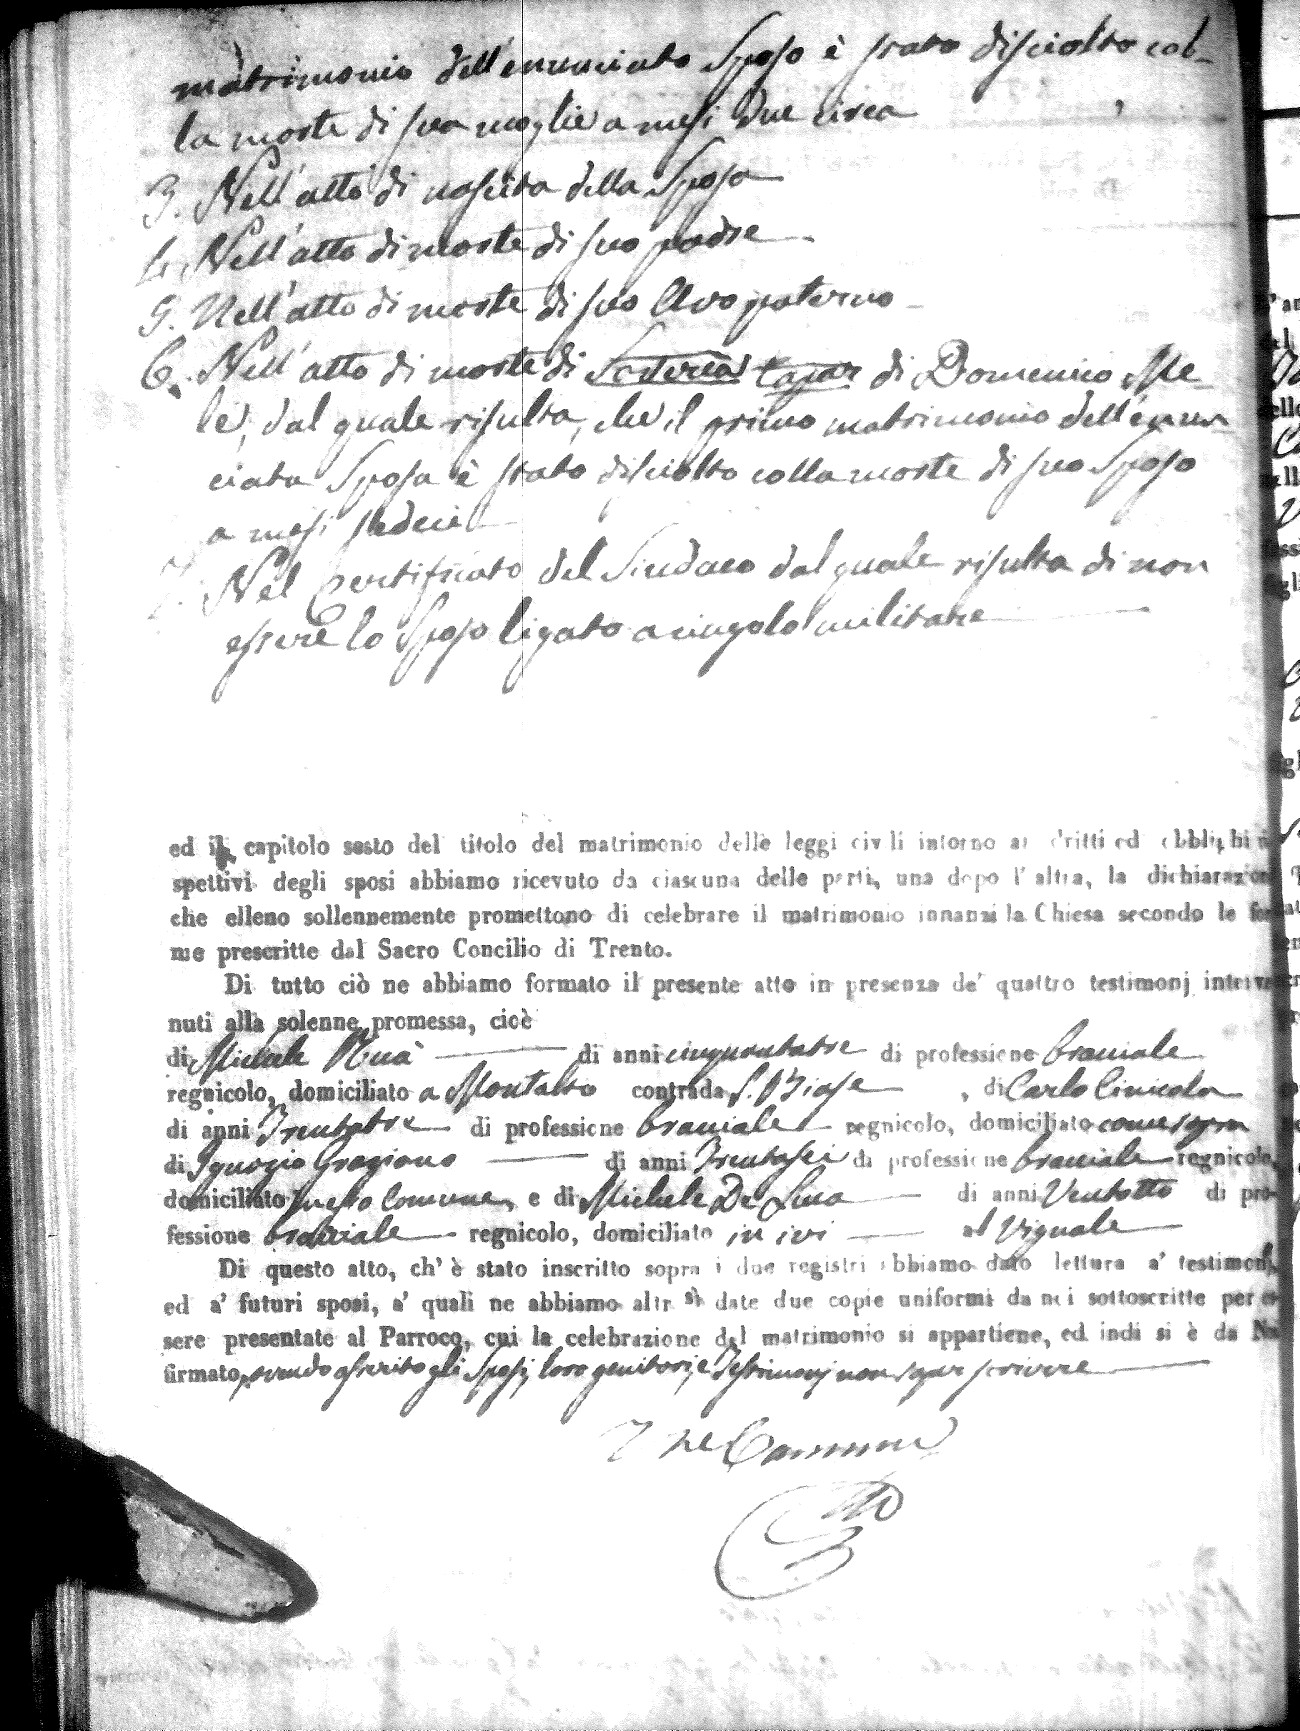 matrimonio dell'enunciato Sposo è stato disciolto col-
la morte di sua moglie a mesi due circa
3. Nell'atto di nascita della Sposa
4. Nell'atto di morte di suo padre
5. Nell'atto di morte di suo Avo paterno
6. Nell'atto di morte di di Domenico Me
le, dal quale risulta, che il primo matrimonio dell'enun-
ciata Sposa è stato disciolto colla morte di suo Sposo
a mesi sedeci
7. Nel Certificato del Sindaco dal quale risulta di non
essere lo Sposo ligato a cingolo militare
ed il capitolo sesto del titolo del matrimonio delle leggi civili intorno ai dritti ed obblighi ri
spettivi degli sposi abbiamo ricevuto da ciascuna delle parti, una dopo l'altra, la dichiarazione
che elleno sollennemente promettono di celebrare il matrimonio innanzi la Chiesa secondo le for
me prescritte dal Sacro Concilio di Trento.
Di tutto ciò ne abbiamo formato il presente atto in presenza de' quattro testimonj interve
nuti alla solenne promessa, cioè
di Michele di anni cinquantatre di professione bracciale
regnicolo, domiciliato a Montalto contrada S. Biase, di Carlo
di anni Trentatre di professione bracciale regnicolo, domiciliato come sopra
di Ignazio Graziano di anni Trentasei di professione bracciale regnicolo,
domiciliato in questo Comune, e di Michele De Luca di anni Ventotto di pro-
fessione bracciale regnicolo, domiciliato in ivi al Vignale
Di questo atto, ch' è stato inscritto sopra i due registri abbiamo dato lettura a' testimonj,
ed a' futuri sposi, a' quali ne abbiamo altresì date due copie uniformi da noi sottoscritte per es
sere presentate al Parroco, cui la celebrazione del matrimonio si appartiene, ed indi si è da Noi
firmato, avendo asserito gli Sposi, loro genitori, e Testimonj non saper scrivere